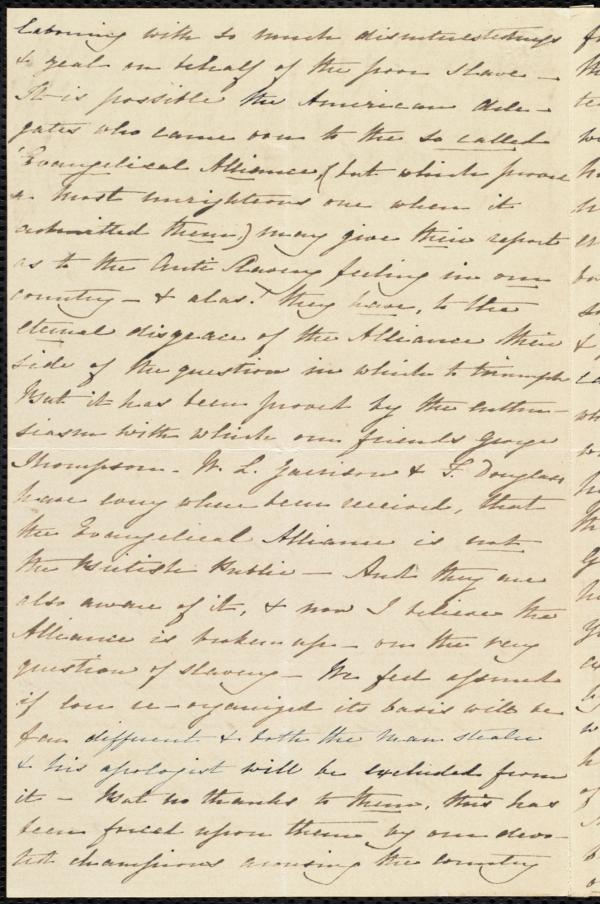 labouring with so much disinterestedness
& zeal on behalf of the poor Slave —
It is possible the American dele-
gates who came over to the so called
"Evangelical Alliance (but which proved
a most unrighteous one when it
admitted them) may give their report
as to the Anti Slavery feeling in our
country — & alas! they have, to the
eternal disgrace of the Alliance their
side of the question in which to triumph
But it has been proved by the enthu-
siasm with which our friends George
Thompson - W. L. Garrison & F. Douglass
have every where been received, that
the Evangelical Alliance is not
the British Public — And they are
also aware of it, & now I believe the
Alliance is broken up — on the very
question of slavery — We feel assured
if ever re-organized its basis will be
far different & both the man stealer
& his apologist will be excluded from
it — But no thanks to them, this has
been forced upon them by our devo-
ted champions arousing the country